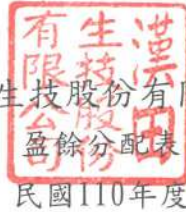 漢田
生技股份
有限公司
生技股份有限
盈餘分配表
民國110年度